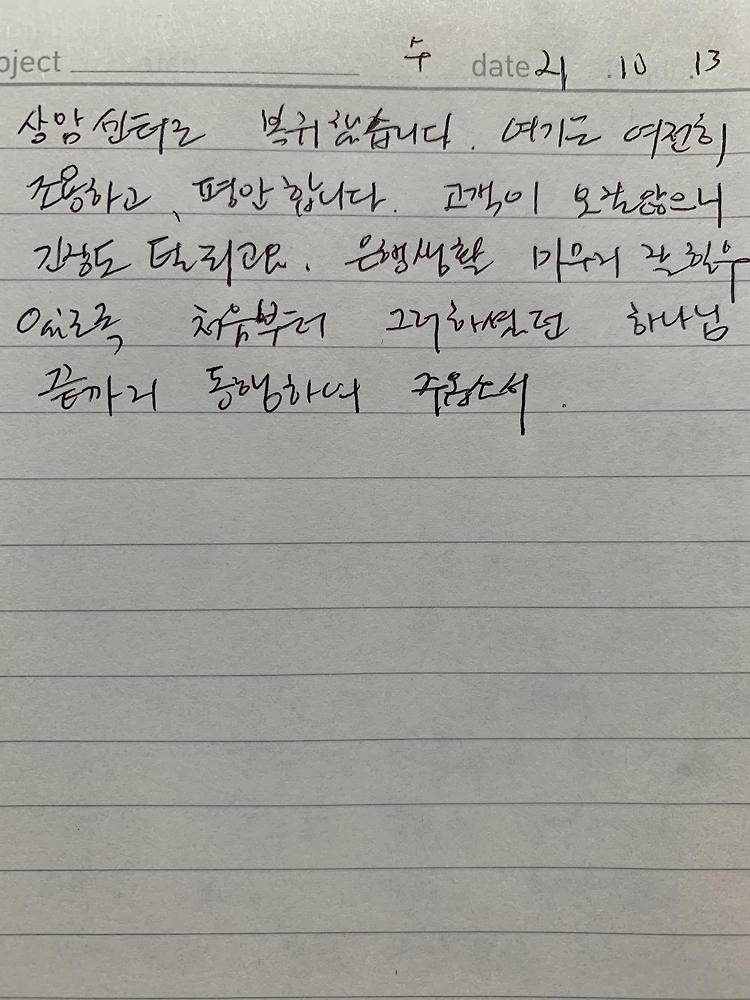 bject 수 date 21 . 10 . 13
상암센터로 복귀했습니다. 여기는 여전히
조용하고, 평안합니다. 고객이 오질않으니
긴장도 덜리고요. 은행생활 마무리 잘 할수
있도록 처음부터 그러하셨던 하나님
끝까지 동행하여 주옵소서.